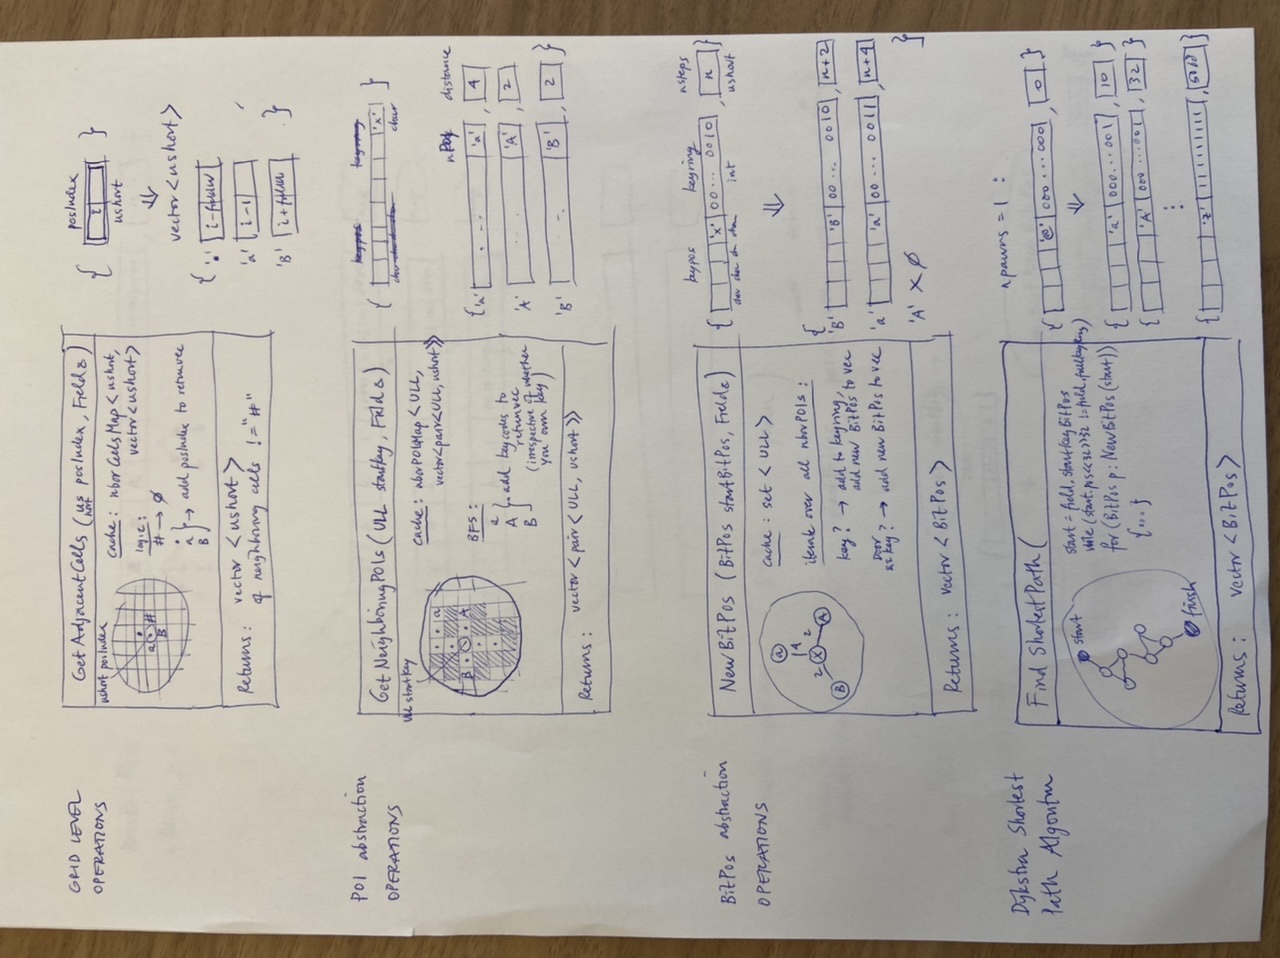 GRID LEVEL
OPERATIONS
GetAdjacentCells (ushort posIndex, Field&)
ushort posIndex
cache: nborCellsMap <ushort,
vector<ushort>
logic:
# → ∅
.
a
B
} → add posIndex to returnvec
a # B
Returns: vector <ushort>
of neighboring cells != "#"
posIndex
{ i }
ushort
⇓
vector <ushort>
{ '.'
'a' i-1
'B' }
POI abstraction
OPERATIONS
GetNeighboringPOIs (ULL startkey, Field&)
ULL startkey
cache: nborPOIMap <ULL,
vector<pair<ULL, ushort>>
BFS:
a
A
B
} add keycodes to
returnvec
(irrespective of whether
you own key)
a A B
Returns: vector <pair <ULL, ushort>>
keypos keyring
{ 'x' }
char
distance
{ 'a' 'a' , 4
'A' 'A' , 2
'B' 'B' , 2 }
BitPos abstraction
OPERATIONS
NewBitPos (BitPos startBitPos, Field&)
cache: set <ULL>
iterate over all nborPOIs:
key? → add to keyring,
add new BitPos to vec
door
&& key? → add new BitPos to vec
a 4 2 A X 2 B
Returns: vector <BitPos>
keypos keyring nsteps
{ 'x' 00... 0010 , n }
int ushort
⇓
{
'B' 'B' 00... 0010 , n+2
'a' 'a' 00... 0011 , n+4
'A' X ∅ }
Dijkstra Shortest
Path Algorithm
Find ShortestPath (
start = field.startKeyBitPos
for (BitPos p : NewBitPos(start))
{...}
start
finish
Returns: vector <BitPos>
npawns = 1 :
{ '@' 000...000 , 0 }
⇓
{ 'a' 000...001 , 10 }
{ 'A' 000...001 , 32 }
: